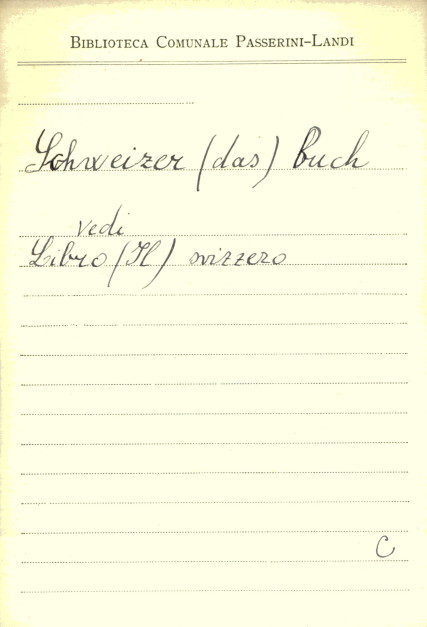 Biblioteca Comunale Passerini-Landi
Schweizer (das) buch
vedi
Libro (Il) svizzero
C